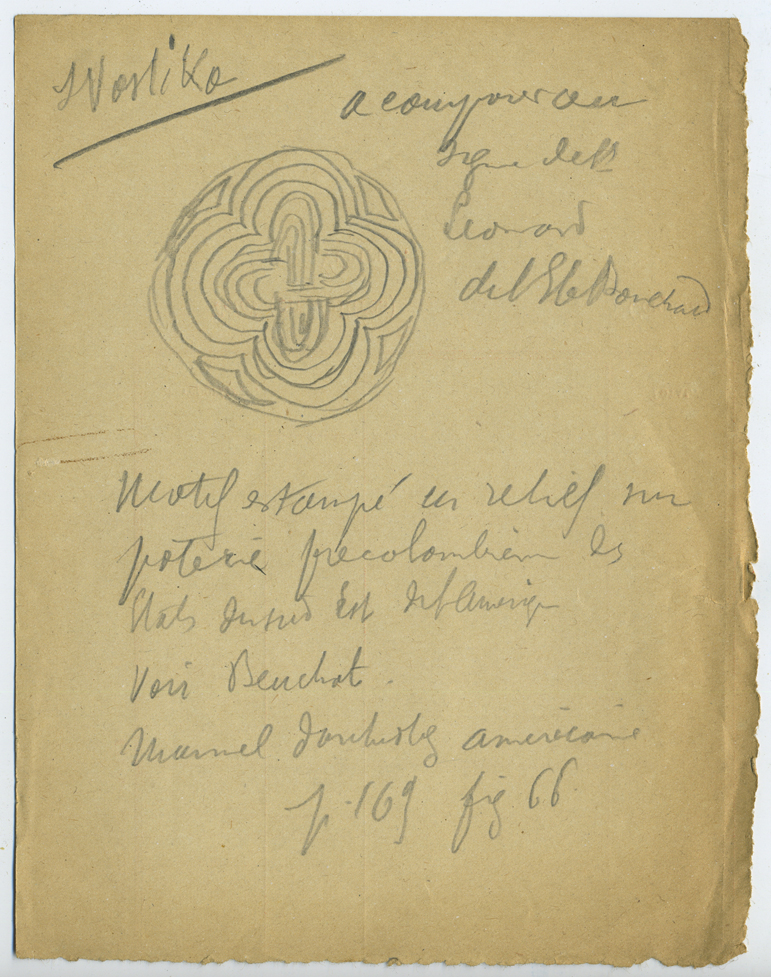 Swastika
a comparer au
signe de St
Leonard
de l'Ile Bouchard
Motif estampé en relief sur
poterie precolombienne des
Etats du sud Est de l'Amerique
Voir Beuchat.
Manuel d'archeolog americaine
p. 169 fig 66